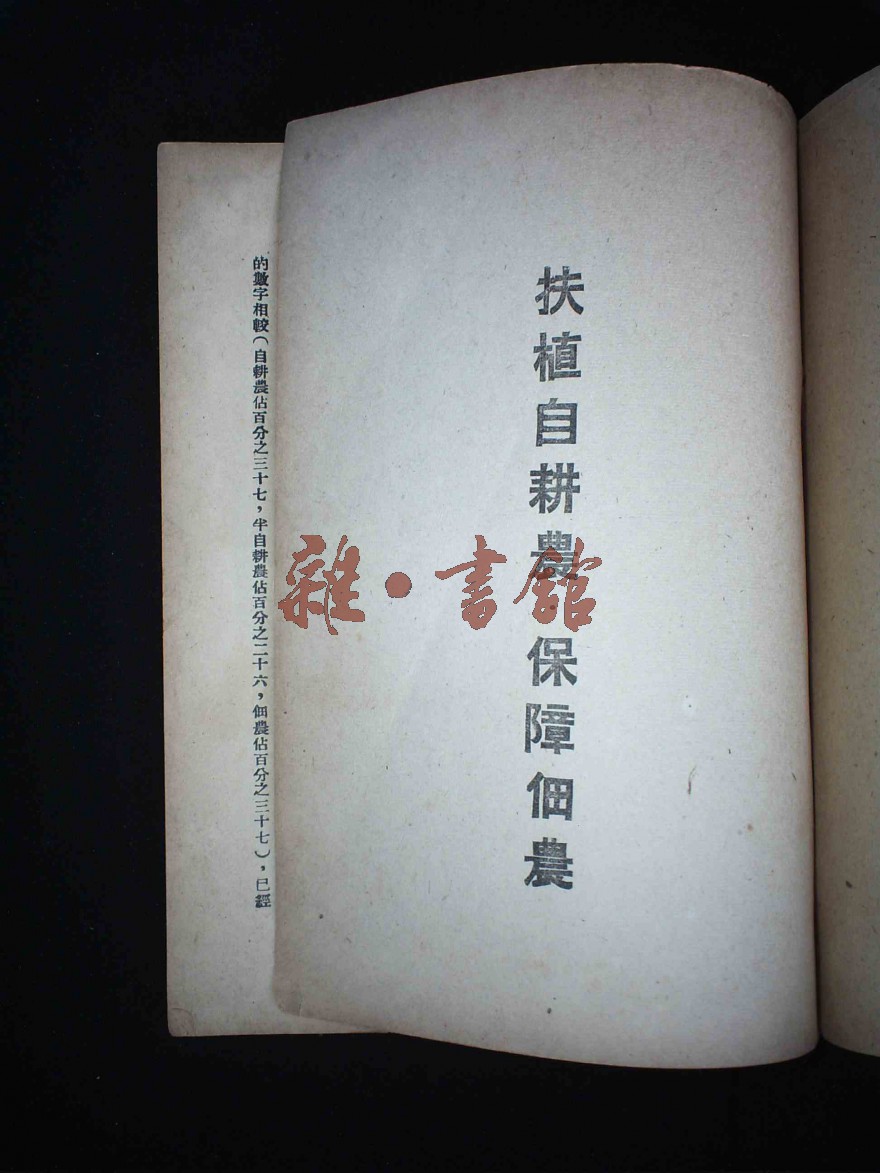 扶植自耕農·保障佃農
雜·書館
的數字相較（自耕農佔百分之三十七，半自耕農佔百分之二十六，佃農佔百分之三十七），已經